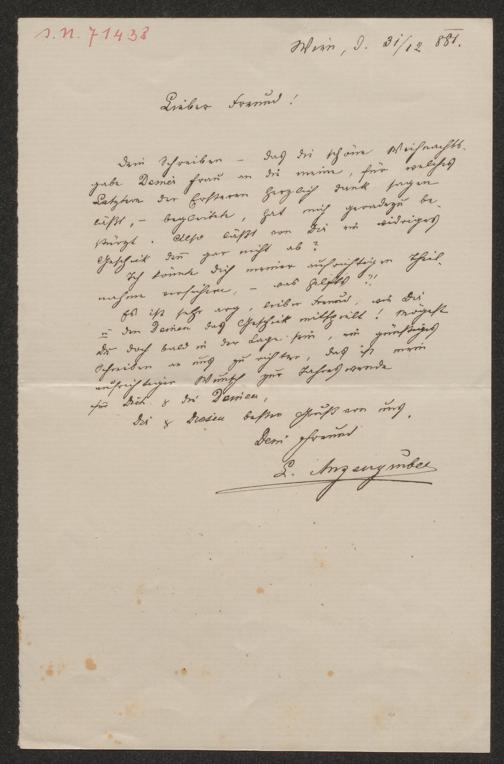 J.N. 71438
Wien, d. 31/12 881.
Lieber Freund!
Dein Schreiben – das die schöne Weihnachts-
gabe Deiner Frau an die meine, für welches
Letztere der Ersteren herzlich dank sagen
läßt, – begleitete, hat mich geradezu be-
stürzt. Also läßt von Dir ein widriges
Geschick denn gar nicht ab?
Ich könnte Dich meiner aufrichtigen Theil-
nahme versichern, – was hilft's?!
Es ist sehr arg, lieber Freund, wie Dir
u den Deinen das Geschick mitspielt! Mögest
Du doch bald in der Lage sein, ein günstiges
Schreiben an uns zu richten, das ist mein
aufrichtiger Wunsch zur Jahreswende
für Dich & die Deinen,
Dir & Diesen besten Gruß von uns.
Dein Freund
L. Anzengruber